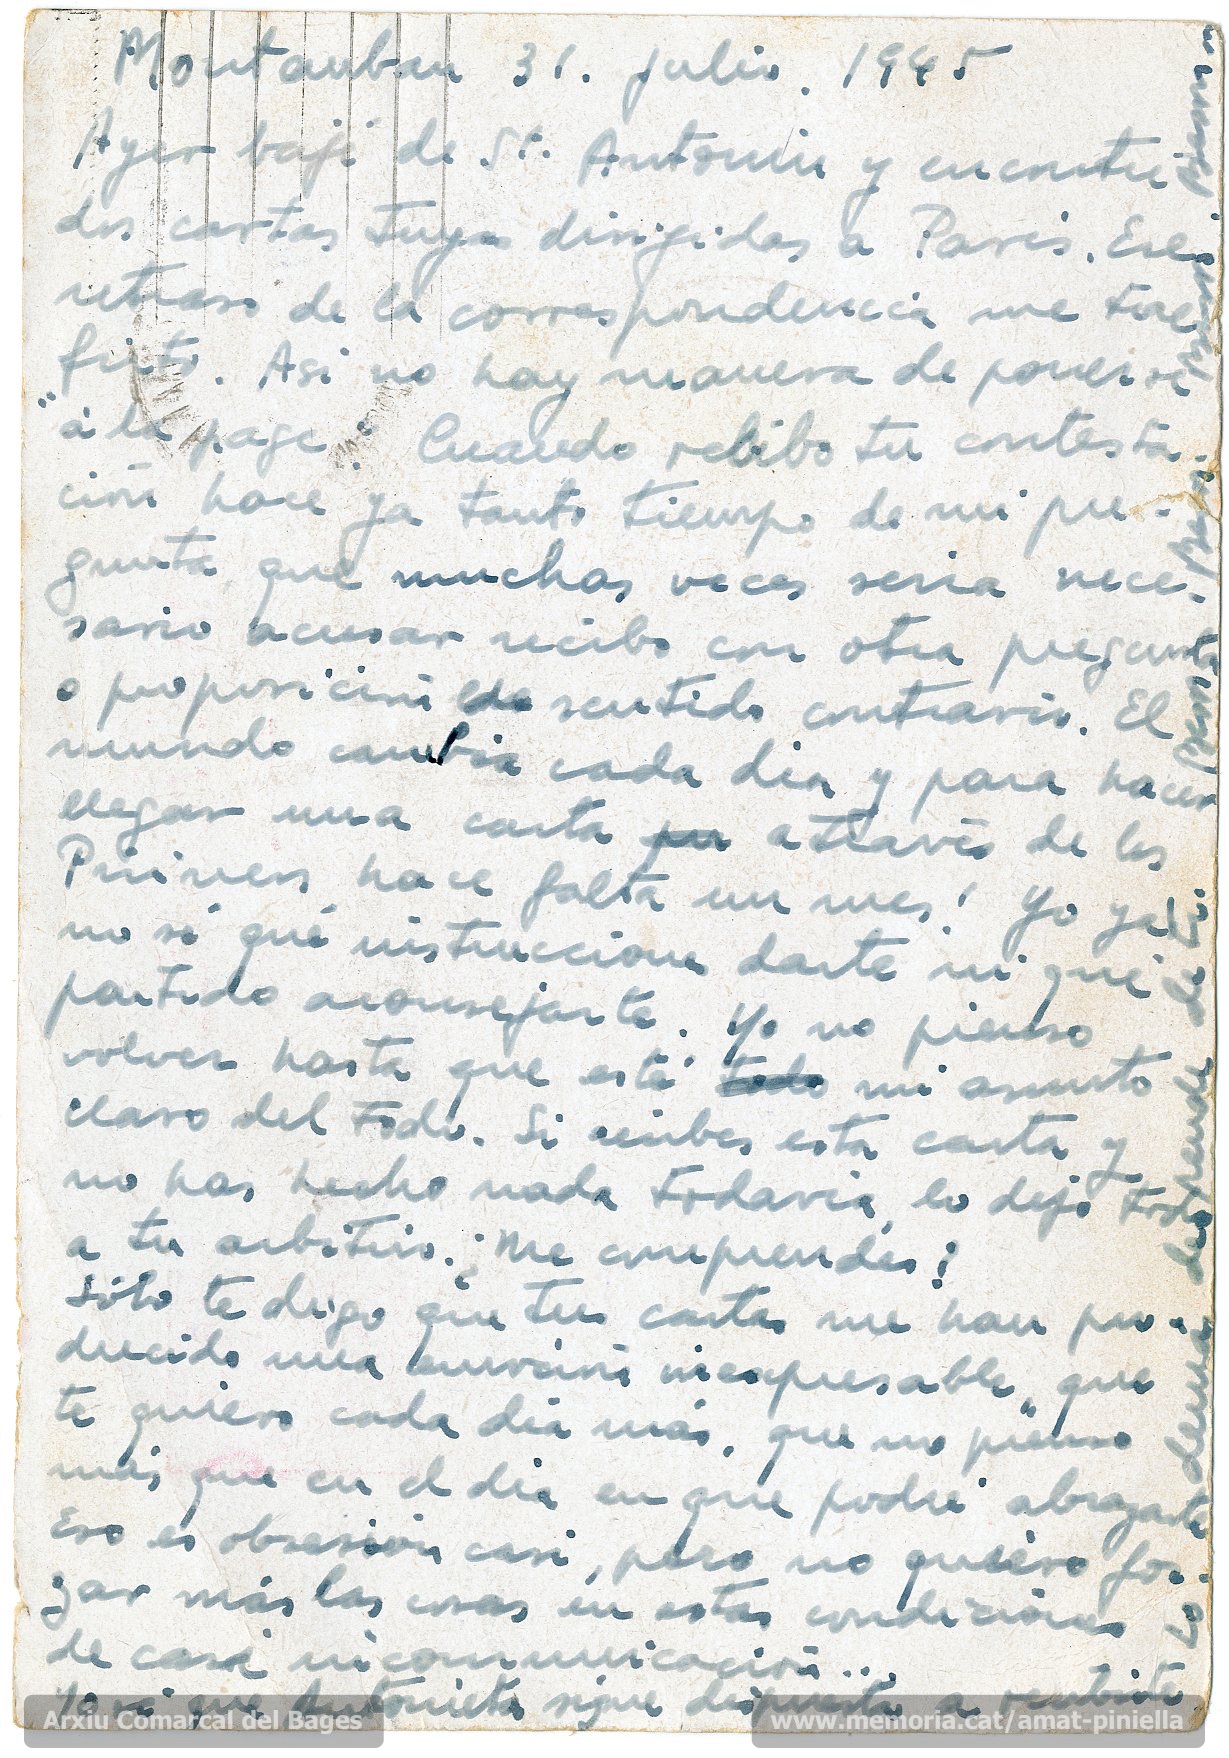 Montauban 31. julio. 1945
Ayer bajé de St. Antonin y encontré
dos cartas tuyas dirigidas a Paris. Ese
retraso de la correspondencia me tiene
frito. Asi no hay manera de ponerse
"à la page". Cuando recibo tu contesta-
ción hace ya tanto tiempo de mi pre-
gunta, que muchas veces seria nece-
sario acusar recibo con otra pregunta
o proposición de sentido contrario. El
mundo cambia cada dia y para hacer
llegar una carta a través de los
Pirineos hace falta un mes! Yo ya
no sé qué instrucciones darte ni qué
partido aconsejarte. Yo no pienso
volver hasta que esté todo mi asunto
claro del todo. Si recibes esta carta y
no has hecho nada todavia, lo dejo todo
a tu arbitrio. ¿Me comprendes?
Sólo te digo que tus cartas me han pro-
ducido una emoción inexpresable, que
te quiero cada dia más, que no pienso
más que en el dia en que podré abrazarte
Eso es obsesión casi, pero no quiero for-
zar más las cosas en estas condiciones
de casi incomunicación...
que Antonieta sigue dispuesta a recibirte
Lo demás depende de ti.
Arxiu Comarcal del Bages
www.memoria.cat/amat-piniella